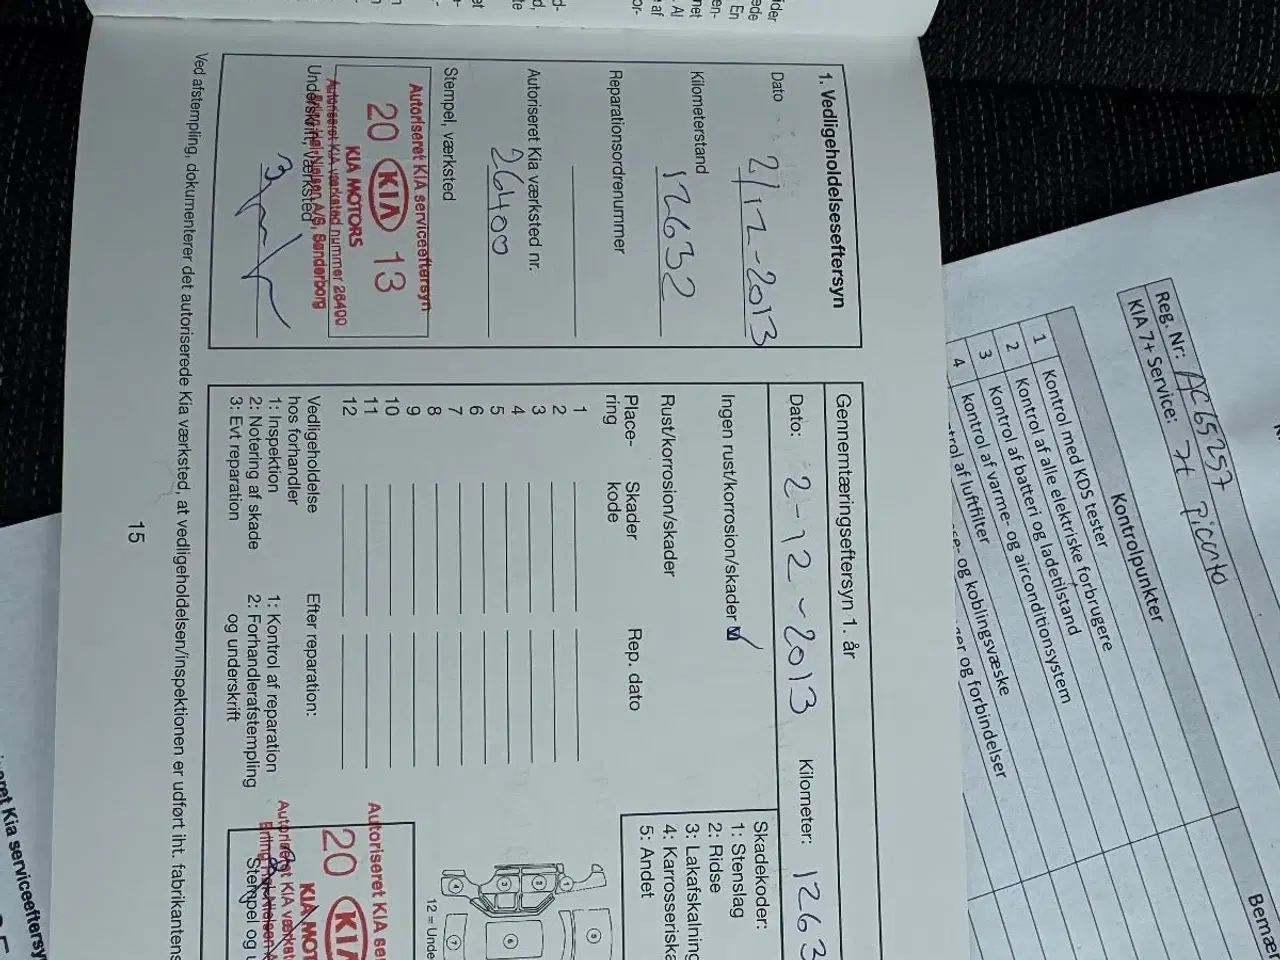 1. Vedligeholdelseseftersyn
Dato 2/12-2013
Kilometerstand 12632
Reparationsordrenummer
Autoriseret Kia værksted nr. 26400
Stempel, værksted
Autoriseret KIA serviceeftersyn
20 KIA 13
KIA MOTORS
Autoriseret KIA værksted nummer 26400
Underskrift, værksted
Ved afstempling, dokumenterer det autoriserede Kia værksted, at vedligeholdelsen/inspektionen er udført iht. fabrikantens
15
Gennemtæringseftersyn 1. år
Dato: 2-12-2013 Kilometer: 1263
Ingen rust/korrosion/skader
Rust/korrosion/skader
Place-
ring
Skader
kode
Rep. dato
1
2
3
4
5
6
7
8
9
10
11
12
Vedligeholdelse
hos forhandler
1: Inspektion
2: Notering af skade
3: Evt reparation
Efter reparation:
1: Kontrol af reparation
2: Forhandlerafstempling
og underskrift
Skadekoder:
1: Stenslag
2: Ridse
3: Lakafskalning
4: Karrosseriska
5: Andet
12 = Unde
Autoriseret KIA ser
20 KIA
KIA MOT
Autoriseret KIA værkst
Stempel og u
Reg. Nr: AC65257
KIA 7+ Service: 7+ Picanto
Kontrolpunkter
1 Kontrol med KDS tester
2 Kontrol af alle elektriske forbrugere
3 Kontrol af batteri og ladetilstand
4 kontrol af varme- og airconditionsystem
trol af luftfilter
og koblingsvæske
og forbindelser
Bemær
ret Kia serviceeftersy